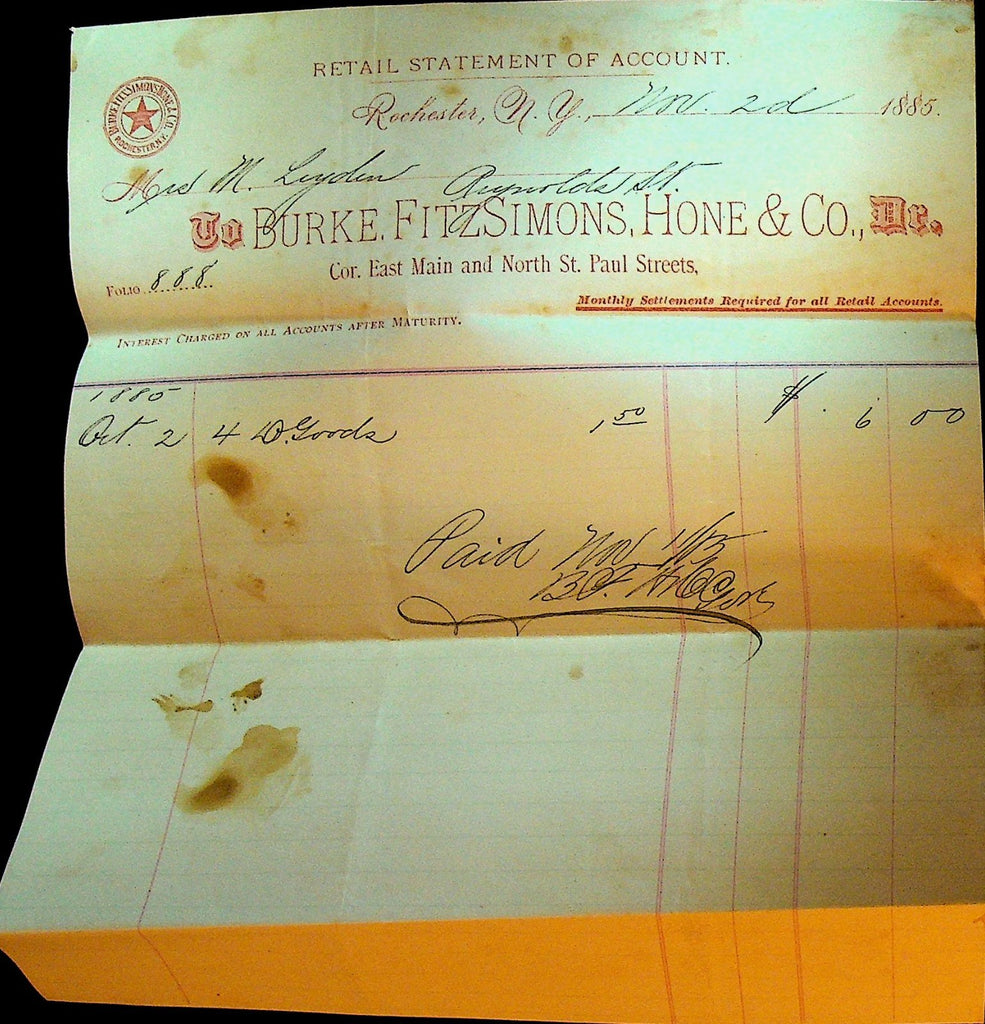 RETAIL STATEMENT OF ACCOUNT.
BURKE, FITZSIMONS, HONE & CO.
ROCHESTER, N.Y.
Rochester, N. Y., Nov. 2d 1885.
Mrs M. Leyden Reynolds St.
To BURKE, FITZSIMONS, HONE & CO., Dr.
Cor. East Main and North St. Paul Streets,
FOLIO 888
Monthly Settlements Required for all Retail Accounts.
INTEREST CHARGED ON ALL ACCOUNTS AFTER MATURITY.
1885
Oct. 2 4 D.Goods 1 50 $ 6 00
Paid Nov
B.F. H & Co